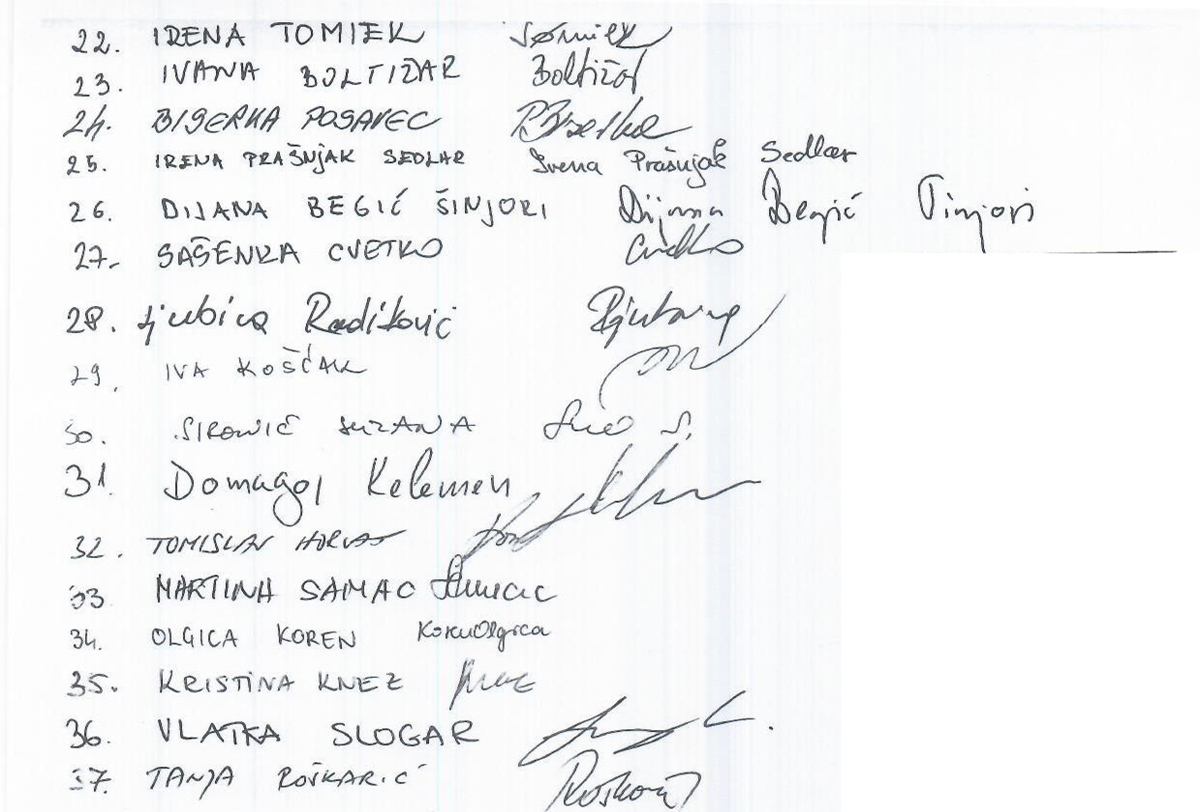 22. IRENA TOMIEK Tomiek
23. IVANA BOLTIŽAR Boltižar
24. BISERKA POSAVEC PBiserka
25. IRENA PRAŠNJAK SEDLAR Irena Prašnjak Sedlar
26. DIJANA BEGIĆ ŠINJORI Dijana Begić Šinjori
27. SAŠENKA CVETKO Cvetko
28. Ljubica Radiković
29. IVA KOŠĆAK
30. SIROVIĆ SUZANA
31. Domagoj Kelemen
32. TOMISLAV HORVAT
33. MARTINA SAMAC Samac
34. OLGICA KOREN Koren Olgica
35. KRISTINA KNEZ Knez
36. VLATKA SLOGAR
37. TANJA ROŠKARIĆ